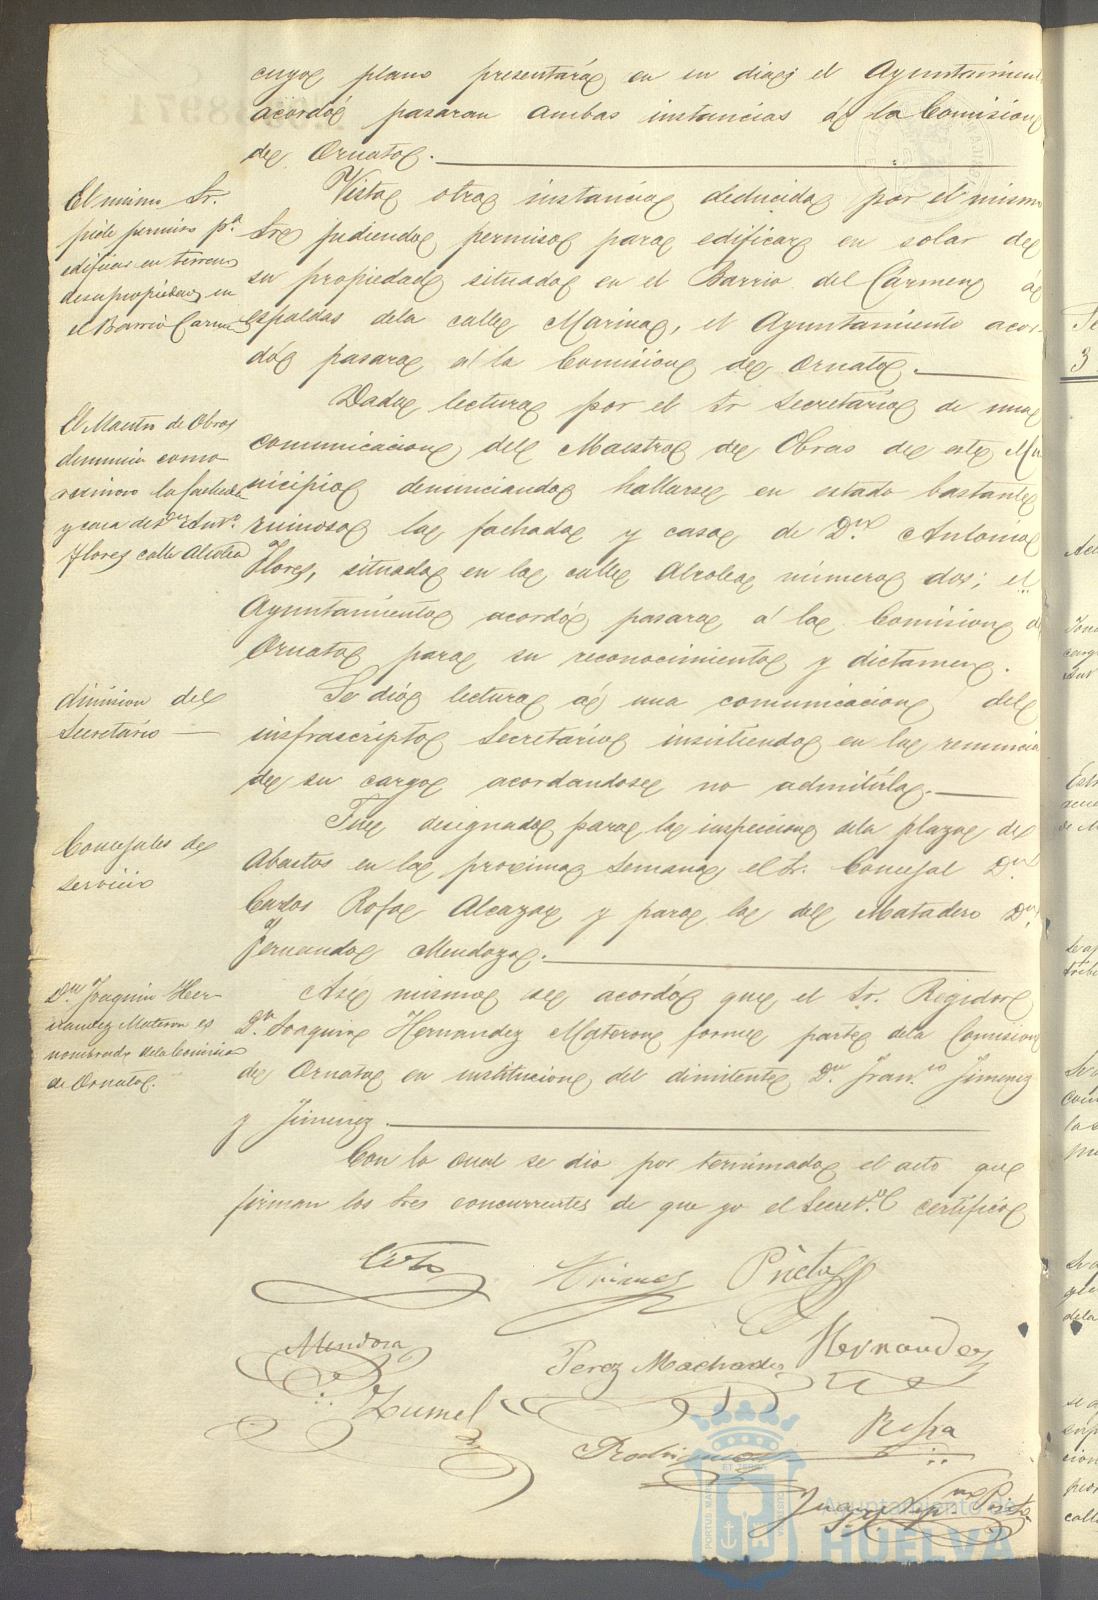 cuyo plano presentará en su dia; el Ayuntamiento
acordó pasaran ambas instancias á la Comision
de Ornato.
El mismo Sr.
pide permiso pª
edificar en terreno
de su propiedad en
el Barrio Carmen
Vista otra instancia deducida por el mismo
Sr. pidiendo permiso para edificar en solar de
su propiedad situado en el Barrio del Cármen á
espaldas de la calle Marina, el Ayuntamiento acor-
dó pasara á la Comision de Ornato.
El Maestro de Obras
denuncia como
ruinoso la fachada
y casa de Dª Antª
Flores calle
Dada lectura por el Sr Secretário de una
comunicacion del Maestro de Obras de este Mu
nicipio denunciando hallarse en estado bastante
ruinoso la fachada y casa de Dª Antonia
Flores, situada en la calle número dos; el
Ayuntamiento acordó pasara á la Comision de
Ornato para su reconocimiento y dictamen.
dimision del
Secretário
Se dió lectura á una comunicacion del
infrascripto Secretário insistiendo en la renuncia
de su cargo acordandose no admitirla.
Concejales de
servicio
Fue designado para la inspeccion de la plaza de
Abastos en la proxima semana el Sr. Concejal Dn.
Carlos Rofa Alcazar y para la del Matadero Dn.
Fernando Mendoza.
Dn Joaquin Her-
nandez Materon es
nombrado de la Comision
de Ornato.
Asi mismo se acordó que el Sr. Regidor
Dn. Joaquin Hernandez Materon forme parte de la Comision
de Ornato en sustitucion del dimitente Dn. Fran.co Jimenez
y Jimenez.
Con lo cual se dio por terminado el acto que
firman los Sres concurrentes de que yo el Secretº certifico
Prieto
Mendoza
Perez Machado
Hernandez
Zumel
Rofa
Rodriguez
Ayuntamiento de
HUELVA